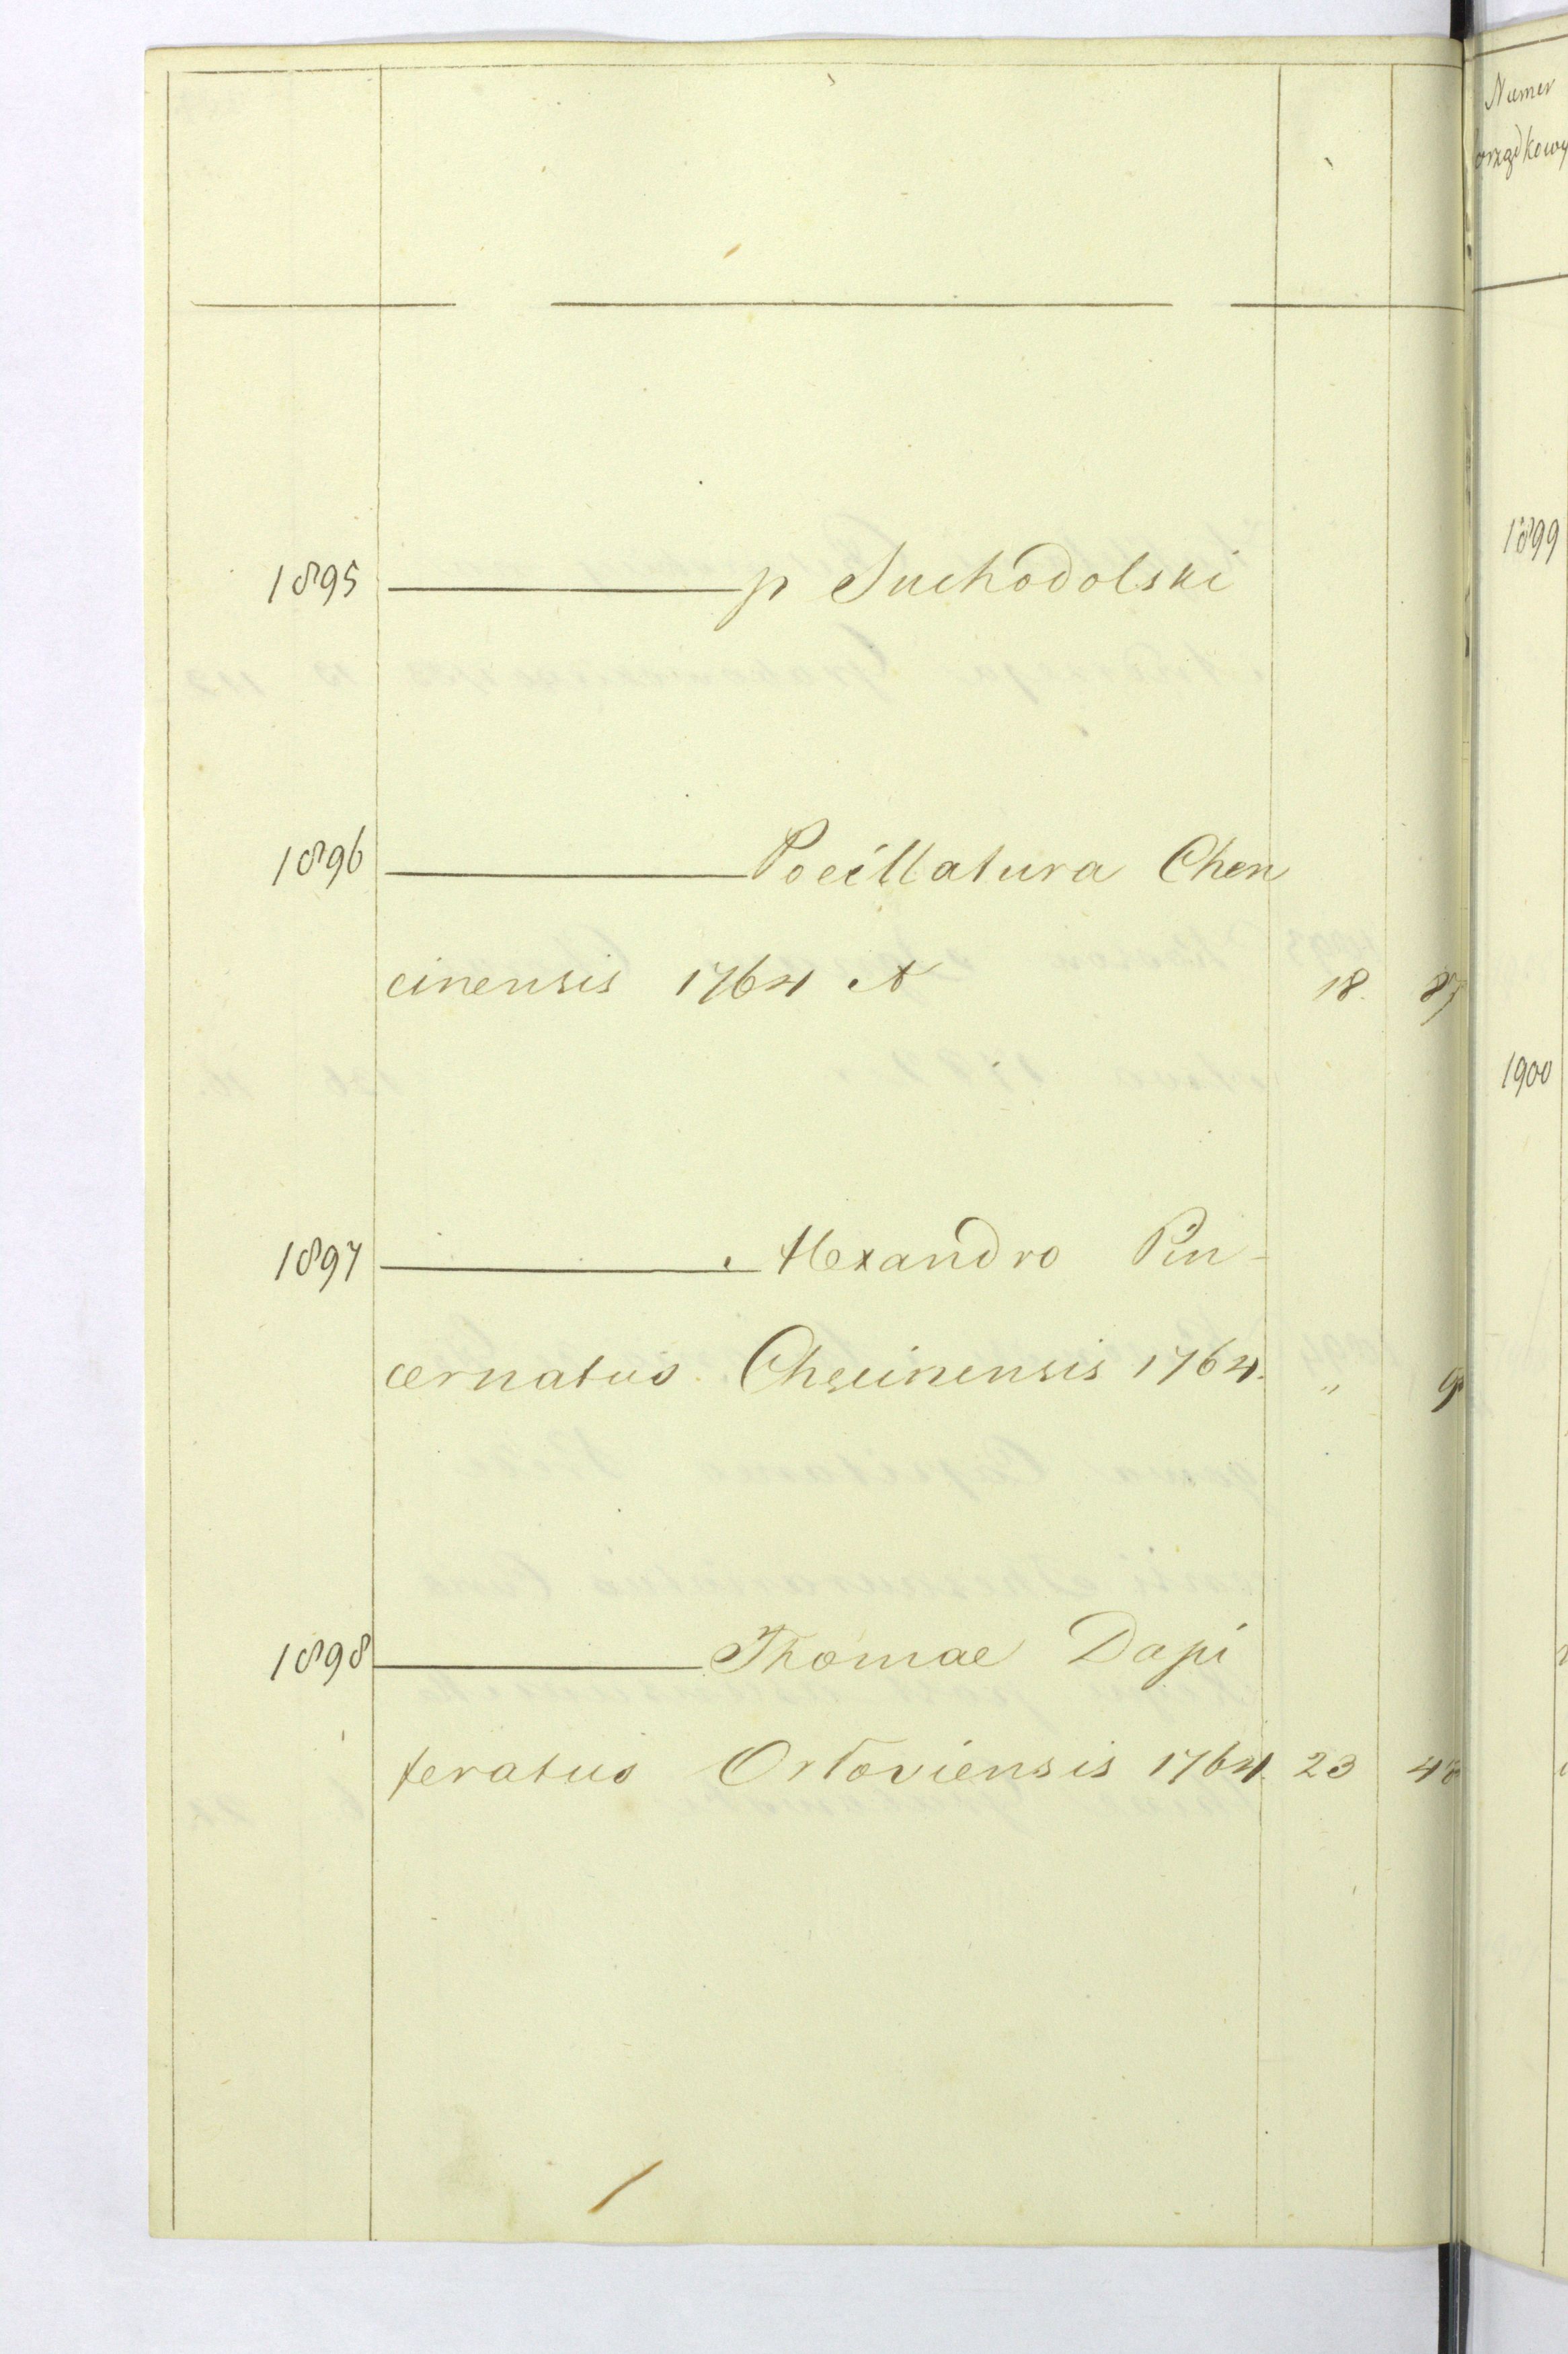 1895 p Suchodolski
1896 Pocillatura Chen
cinensis 1764 A 18. 87
1897 Alexandro Pin-
cernatus Checinensis 1764. "
1898 Thomae Dapi
feratus Orloviensis 1764. 23 48
Numer
porządkowy
1899
1900